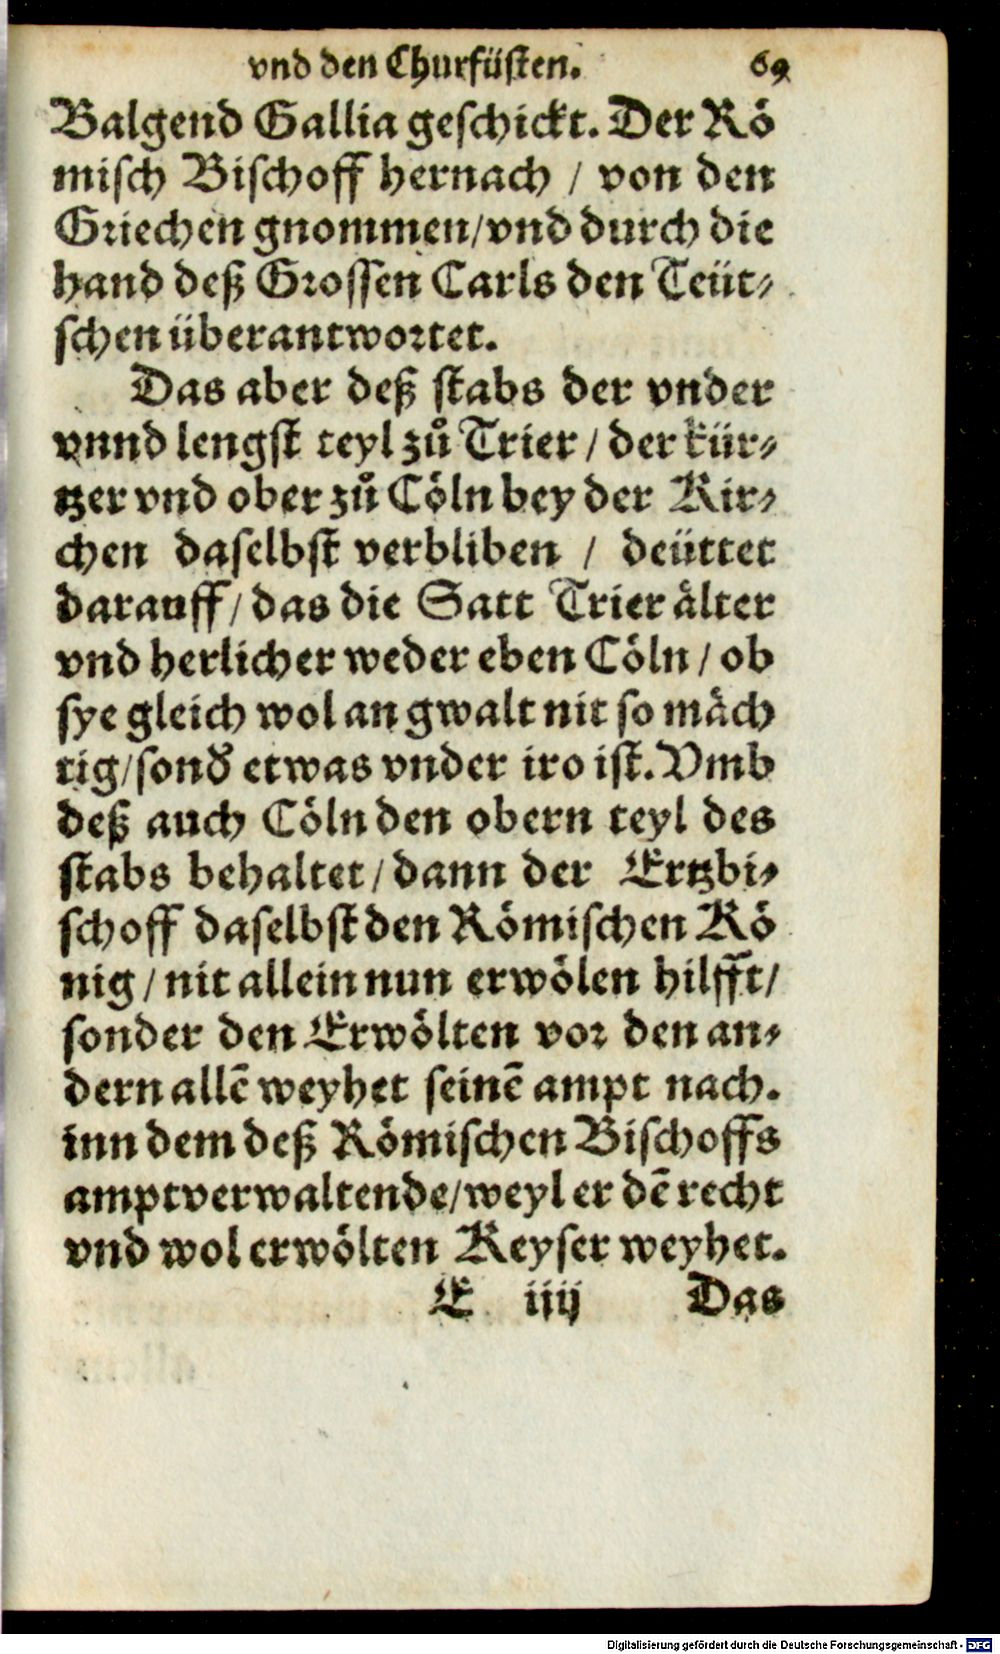 vnd den Churfüsten. 69
Balgend Gallia geschickt. Der Rö
misch Bischoff hernach / von den
Griechen gnommen/vnd durch die
hand deß Grossen Carls den Teüt⸗
schen überantwortet.
Das aber deß stabs der vnder
vnnd lengst teyl zů Trier / der kür⸗
tzer vnd ober zů Cöln bey der Kir⸗
chen daselbst verbliben / deüttet
darauff / das die Satt Trier älter
vnd herlicher weder eben Cöln / ob
sye gleich wol an gwalt nit so mäch
tig/sond̛ etwas vnder iro ist. Vmb
deß auch Cöln den obern teyl des
stabs behaltet / dann der Ertzbi⸗
schoff daselbst den Römischen Kö
nig / nit allein nun erwölen hilfft/
sonder den Erwölten vor den an⸗
dern allē weyhet seinē ampt nach.
inn dem deß Römischen Bischoffs
amptverwaltende/weyl er dē recht
vnd wol erwölten Keyser weyhet.
E iiij Das
Digitalisierung gefördert durch die Deutsche Forschungsgemeinschaft - DFG